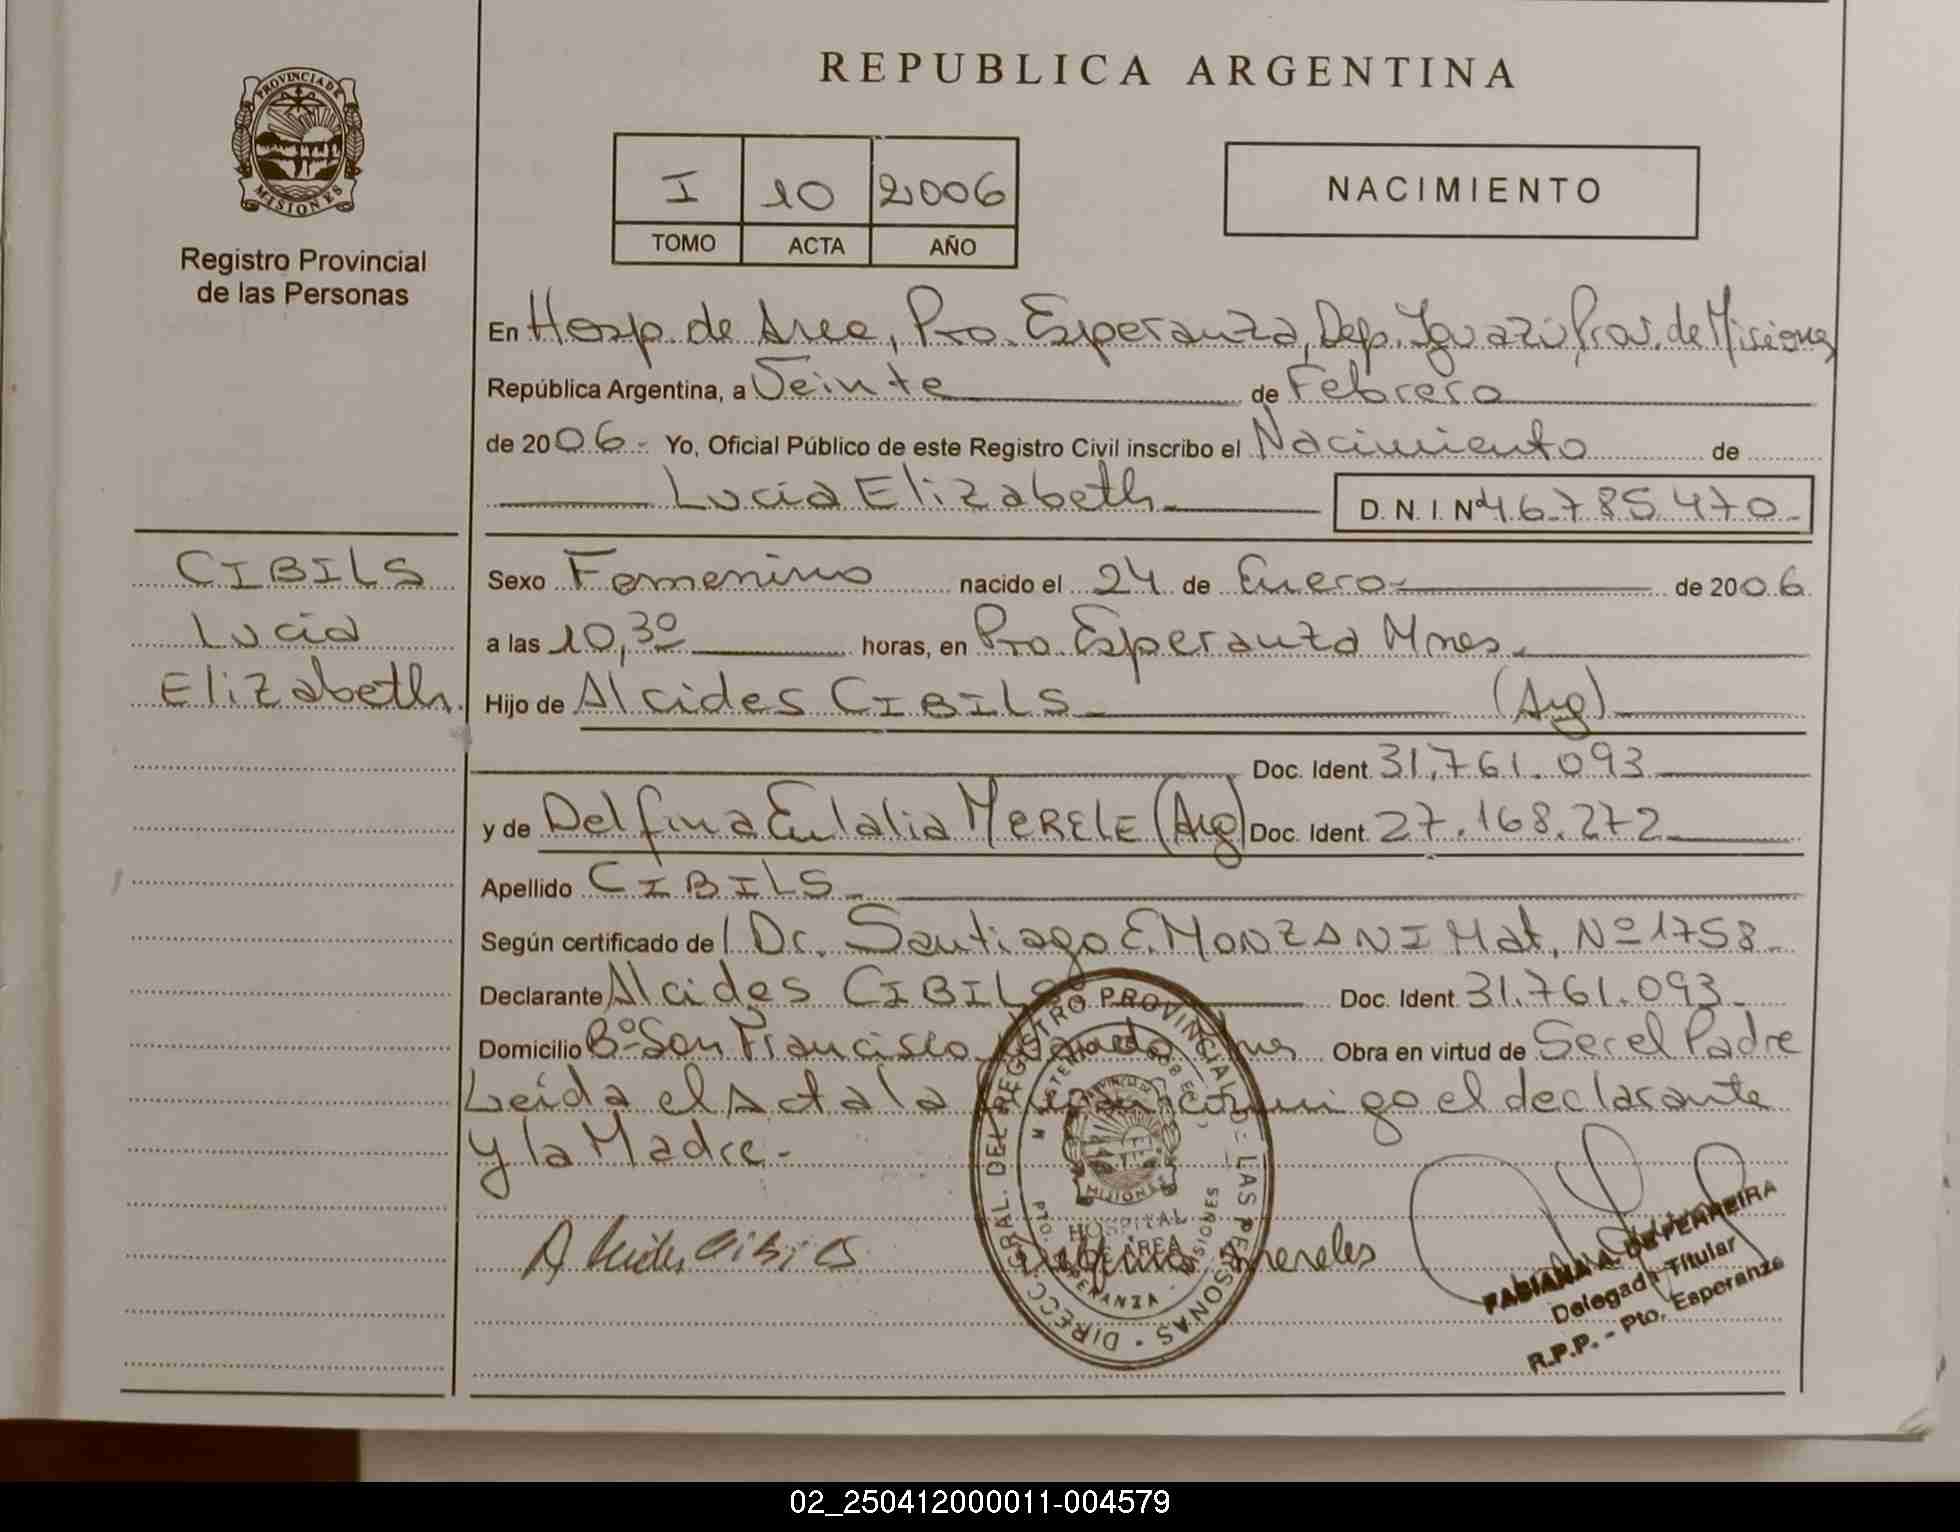 REPUBLICA ARGENTINA
PROVINCIA DE
MISIONES
Registro Provincial
de las Personas
I 10 2006
TOMO ACTA AÑO
NACIMIENTO
En Hosp. de Area, Pto. Esperanza, Dep. Iguazú, Prov. de Misiones
República Argentina, a Veinte de Febrero
de 2006.- Yo, Oficial Público de este Registro Civil inscribo el Nacimiento de
Lucia Elizabeth D. N. I. Nº 46.785.470-
CIBILS
Lucia
Elizabeth.
Sexo Femenino nacido el 24 de Enero- de 2006
a las 10,30 horas, en Pto. Esperanza Mnes.
Hijo de Alcides CIBILS (Arg)
Doc. Ident. 31.761.093
y de Delfina Eulalia MERELE (Arg) Doc. Ident. 27.168.272
Apellido CIBILS
Según certificado del Dr. Santiago E. MONZANI Mat. Nº 1758-
Declarante Alcides CIBILS Doc. Ident. 31.761.093
Domicilio Bº San Francisco Mnes Obra en virtud de Ser el Padre
Leida el Acta la conmigo el declarante
y la Madre.-
Alcides Cibils
Delfina Mereles
DIRECC. GRAL. DEL REGISTRO PROVINCIAL DE LAS PERSONAS
MISIONES
HOSPITAL
DE AREA
PTO. ESPERANZA - MISIONES
FABIANA A. DE FERREIRA
Delegada Titular
R.P.P. - Pto. Esperanza
02_250412000011-004579